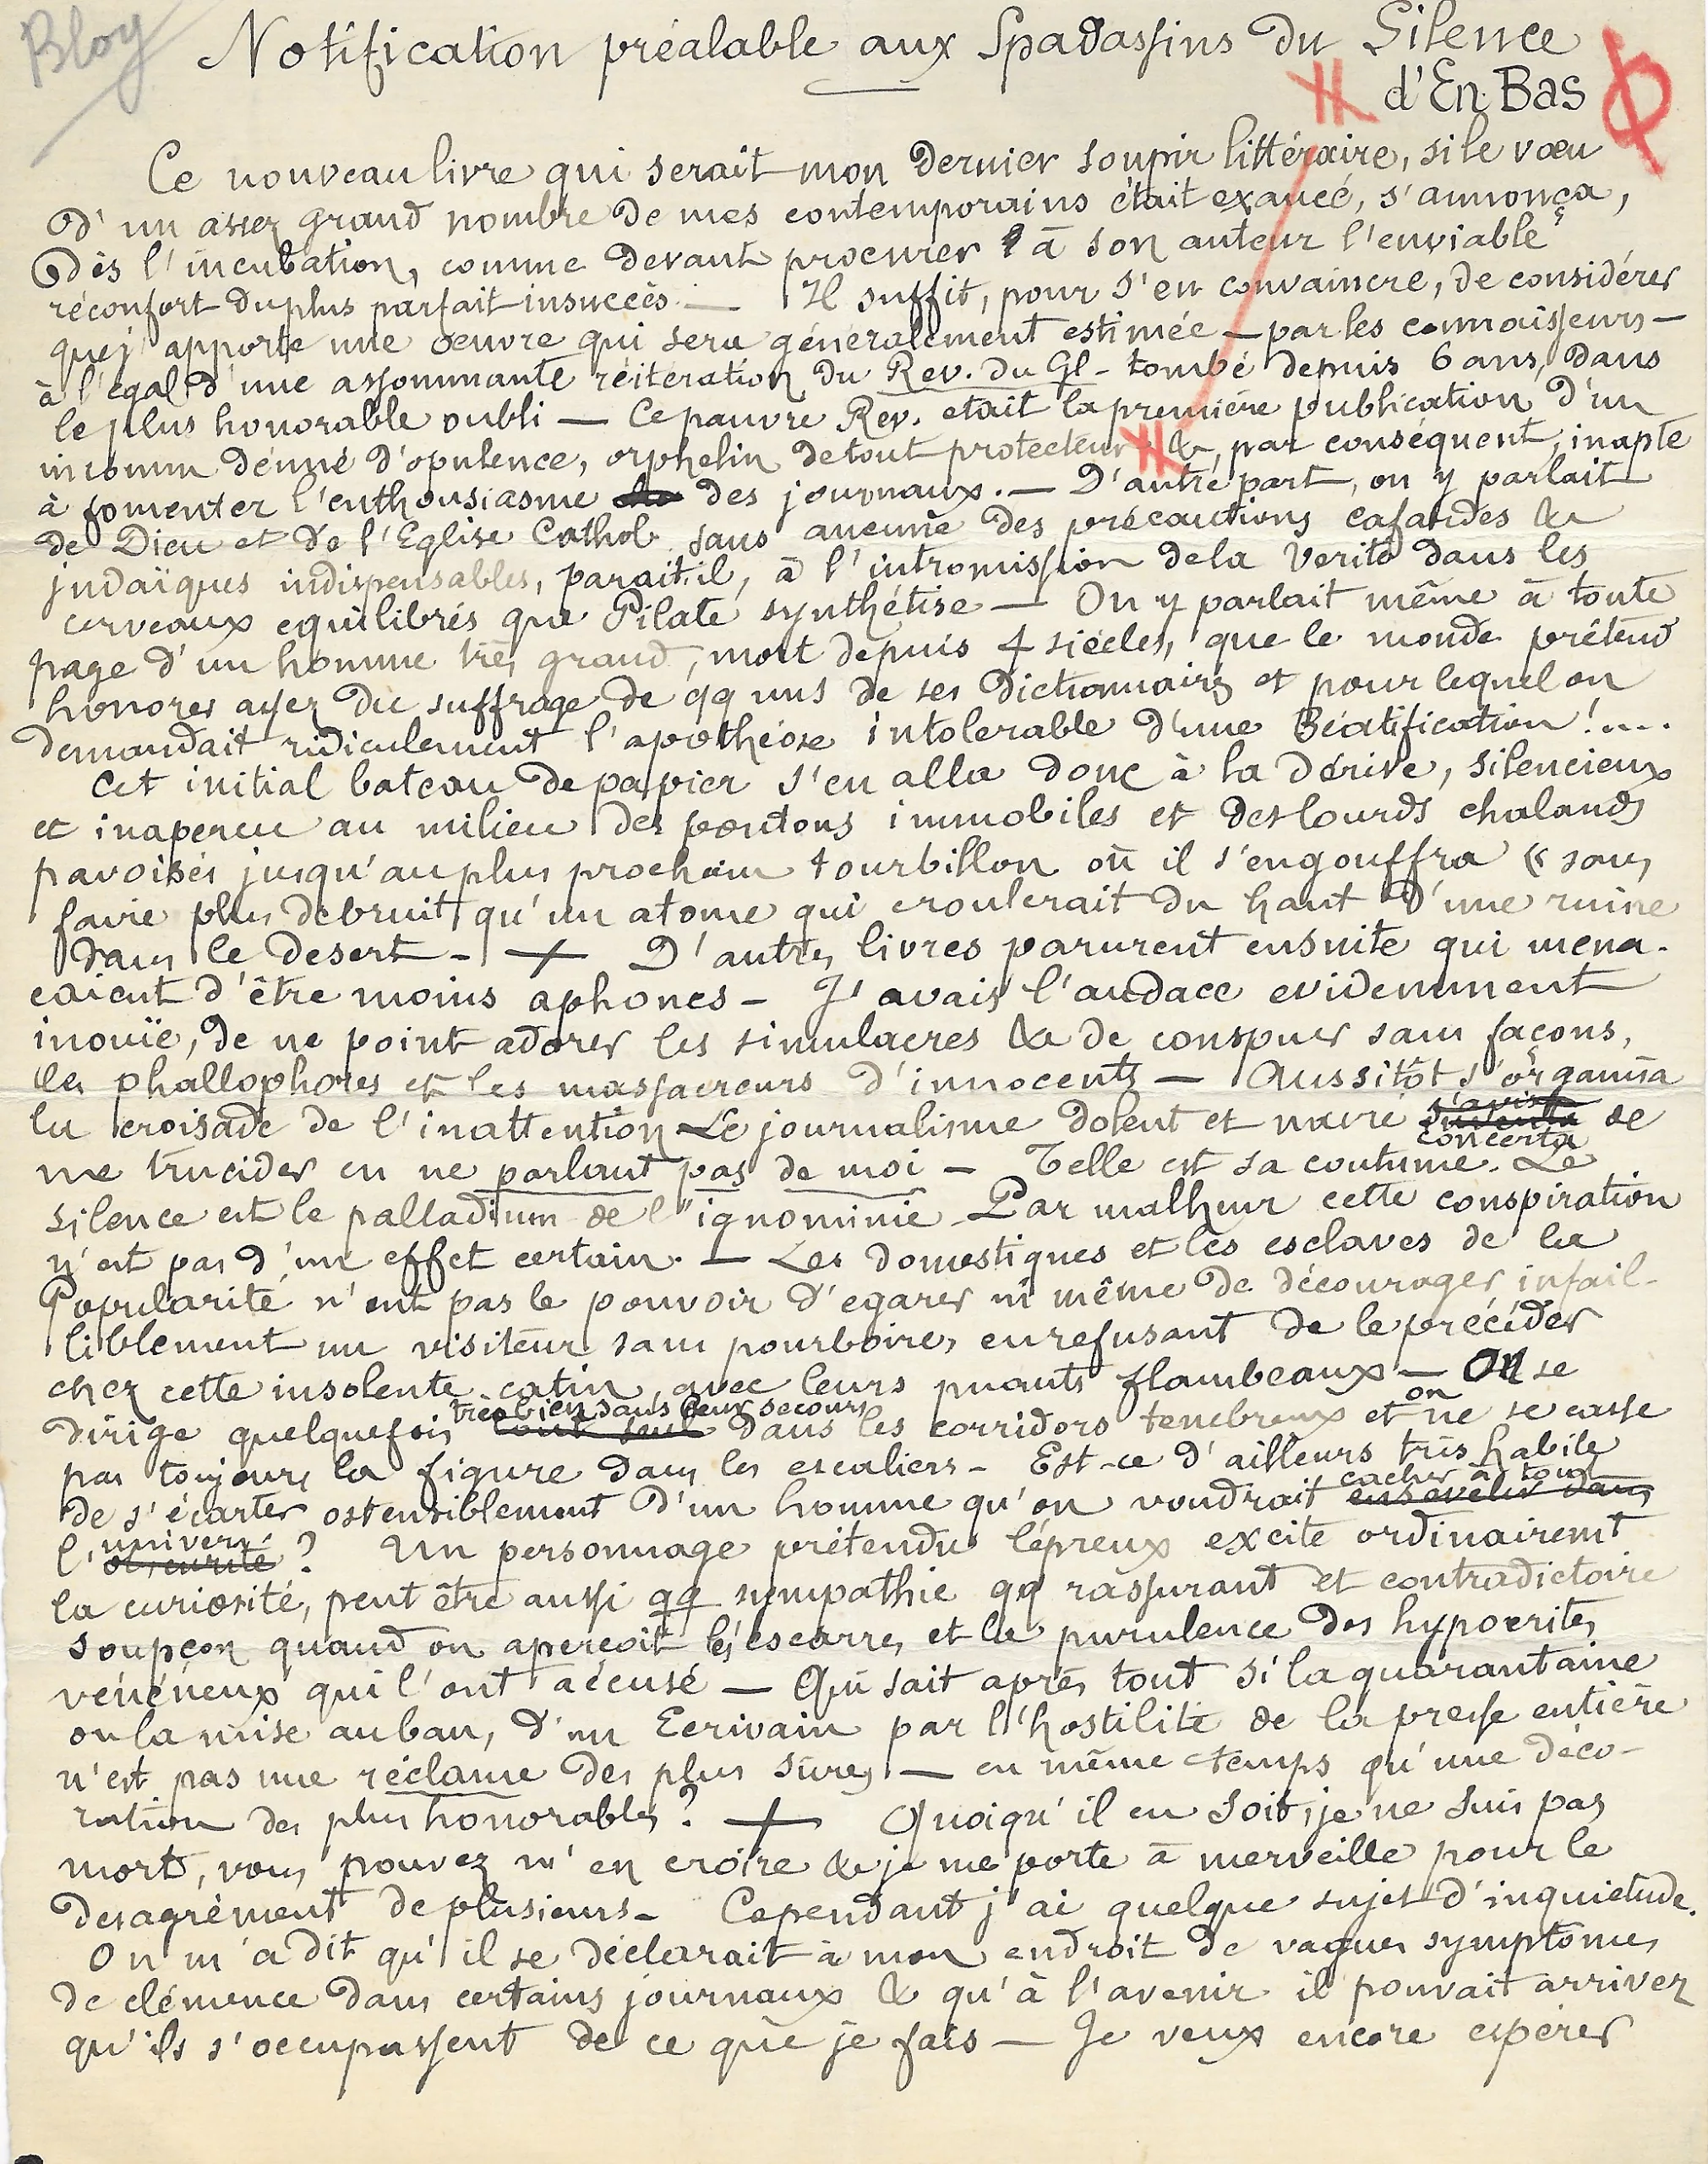 Bloy
Notification préalable aux Spadassins du Silence
d'En Bas
Ce nouveau livre qui serait mon dernier soupir littéraire, si le vœu
d'un assez grand nombre de mes contemporains était exaucé, s'annonça,
Dès l'incubation, comme devant procurer à son auteur l'enviable
réconfort du plus parfait insuccès — Il suffit, pour s'en convaincre, de considérer
que j'apporte une œuvre qui sera généralement estimée — par les connaisseurs —
à l'égal d'une assommante réitération du Rev. du Gl - tombé depuis 6 ans, dans
le plus honorable oubli — Ce pauvre Rev. etait la première publication d'un
inconnu dénué d'opulence, orphelin de tout protecteur &, par conséquent, inapte
à fomenter l'enthousiasme des journaux. — D'autre part, on y parlait
de Dieu et de l'Eglise Cathol. sans aucune des précautions cafardes &
judaïques indispensables, parait-il, à l'intromission de la Verité dans les
cerveaux equilibrés que Pilate synthétise — On y parlait même à toute
page d'un homme très grand, mort depuis 4 siècles, que le monde prétend
honorer assez du suffrage de qq uns de ses Dictionnaires et pour lequel on
demandait ridiculement l'apothéose intolerable d'une Béatification !....
Cet initial bateau de papier s'en alla donc à la dérive, silencieux
et inaperçu au milieu des pontons immobiles et des lourds chalands
pavoisés jusqu'au plus prochain tourbillon où il s'engouffra « sans
faire plus de bruit qu'un atome qui croulerait du haut d'une ruine
dans le desert - + D'autres livres parurent ensuite qui mena-
çaient d'être moins aphones - J'avais l'audace evidemment
inouïe, de ne point adorer les simulacres & de conspuer sans façons,
les phallophores et les massacreurs d'innocents — Aussitôt s'organisa
la croisade de l'inattention Le journalisme dolent et navré concerta de
me trucider en ne parlant pas de moi - Telle est sa coutume. Le
silence est le palladium de l'ignominie - Par malheur cette conspiration
n'est pas d'un effet certain. — Les domestiques et les esclaves de la
Popularité n'ont pas le pouvoir d'egarer ni même de décourager infail-
liblement un visiteur sans pourboires, en refusant de le précéder
chez cette insolente catin, avec leurs puants flambeaux — On se
dirige quelquefois très bien sans leurs secours dans les corridors tenebreux et on ne se casse
pas toujours la figure dans les escaliers - Est-ce d'ailleurs très habile
de s'écarter ostensiblement d'un homme qu'on voudrait cacher à tout
l'univers ? Un personnage prétendu lépreux excite ordinairemt
la curiosité, peut être aussi qq sympathie qq rassurant et contradictoire
soupçon quand on aperçoit les escarres et la purulence des hypocrites
vénéneux qui l'ont accusé — Qui sait après tout si la quarantaine
ou la mise au ban, d'un Ecrivain par l'hostilité de la presse entière
n'est pas une réclame des plus sûres — en même temps qu'une déco-
ration des plus honorables ? + Quoiqu'il en soit, je ne suis pas
mort, vous pouvez m'en croire & je me porte à merveille pour le
desagrément de plusieurs - Cependant j'ai quelque sujet d'inquietude.
On m'a dit qu'il se déclarait à mon endroit de vagues symptômes
de clémence dans certains journaux & qu'à l'avenir il pouvait arriver
qu'ils s'occupassent de ce que je fais — Je veux encore espérer